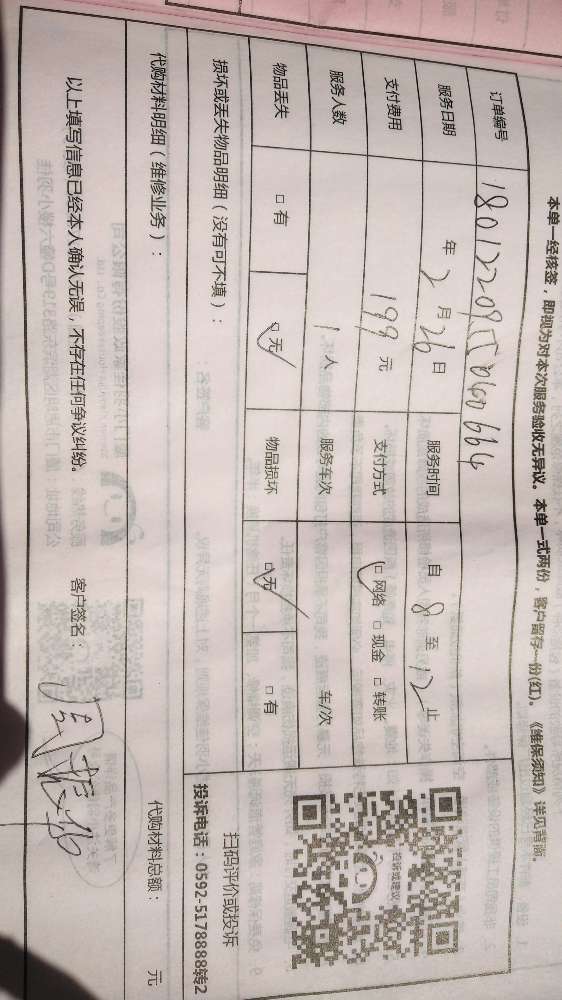 本单一经核签，即视为对本次服务验收无异议。本单一式两份，客户留存一份(红)。《维保须知》详见背面。
订单编号
服务日期 年 2 月 26 日 服务时间 自 8 至 12 止
支付费用 199 元 支付方式 □ 网络 □ 现金 □ 转账
服务人数 1 人 服务车次 车/次
物品丢失 □ 有 □ 无 物品损坏 □ 无 □ 有
扫码评价或投诉
投诉电话：0592-5178888转2
投诉或建议
损坏或丢失物品明细（没有可不填）：
代购材料明细（维修业务）： 代购材料总额： 元
以上填写信息已经本人确认无误，不存在任何争议纠纷。 客户签名：